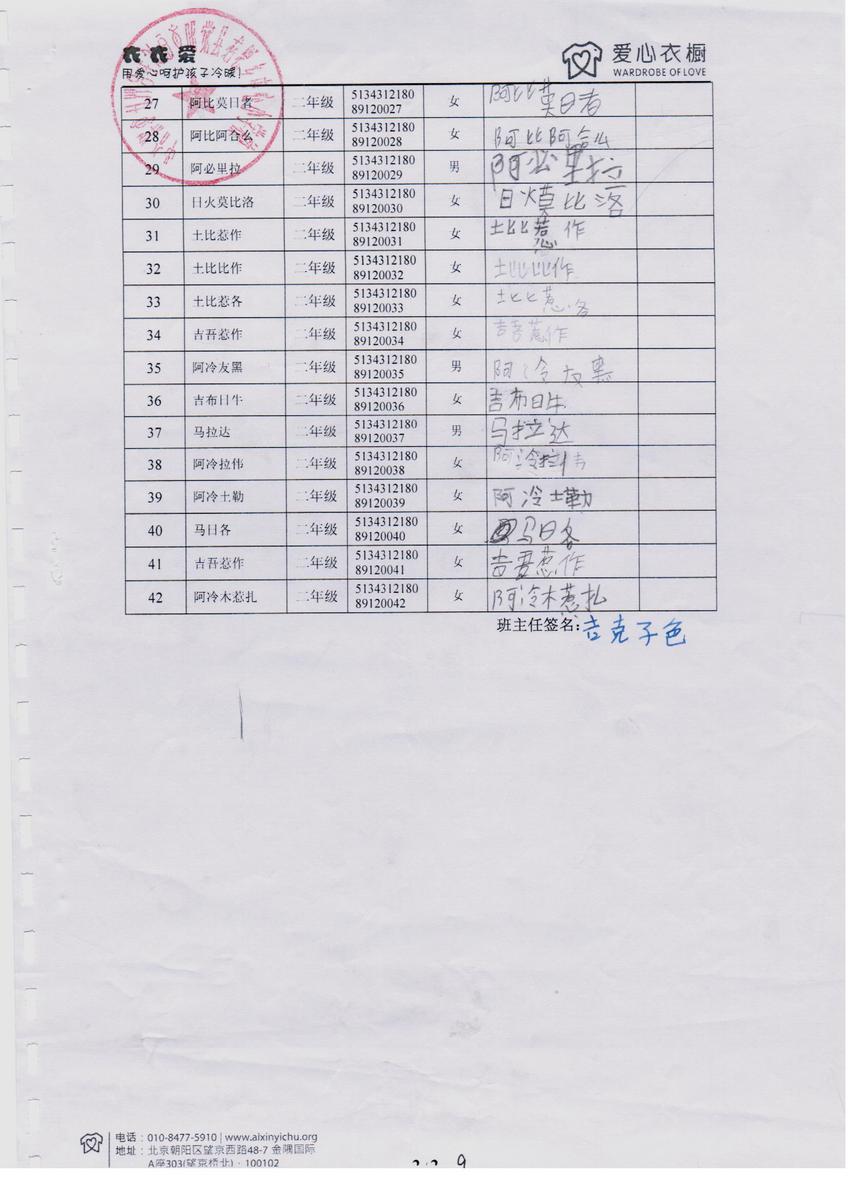 衣衣爱
用爱心呵护孩子冷暖!
爱心衣橱
WARDROBE OF LOVE
27 阿比莫日者 二年级 5134312180 女 阿比莫日者
89120027
28 阿比阿合么 二年级 5134312180 女 阿比阿合么
89120028
29 阿必里拉 二年级 5134312180 男 阿必里拉
89120029
30 日火莫比洛 二年级 5134312180 女 日火莫比洛
89120030
31 土比惹作 二年级 5134312180 女 土比惹作
89120031
32 土比比作 二年级 5134312180 女 土比比作
89120032
33 土比惹各 二年级 5134312180 女 土比惹各
89120033
34 吉吾惹作 二年级 5134312180 女 吉吾惹作
89120034
35 阿冷友黑 二年级 5134312180 男 阿冷友黑
89120035
36 吉布日牛 二年级 5134312180 女 吉布日牛
89120036
37 马拉达 二年级 5134312180 男 马拉达
89120037
38 阿冷拉伟 二年级 5134312180 女 阿冷拉伟
89120038
39 阿冷土勒 二年级 5134312180 女 阿冷土勒
89120039
40 马日各 二年级 5134312180 女 马日各
89120040
41 吉吾惹作 二年级 5134312180 女 吉吾惹作
89120041
42 阿冷木惹扎 二年级 5134312180 女 阿冷木惹扎
89120042
班主任签名:吉克子色
电话:010-8477-5910 | www.aixinyichu.org
地址:北京朝阳区望京西路48-7 金隅国际
A座303(望京桥北)·100102